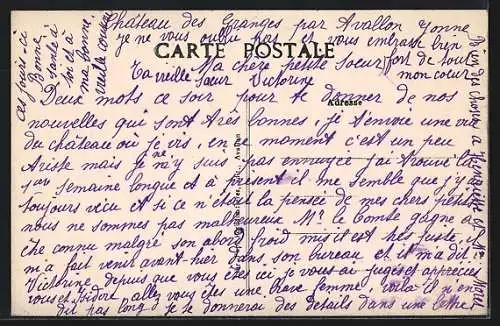 Château des Granges par Avallon Yonne
je ne vous oublie pas et vous embrasse bien
CARTE POSTALE
fort de tout
mon cœur
Ma chère petite sœur
Ta vieille sœur Victorine
Adresse
Deux mots ce soir pour te donner de nos
nouvelles qui sont très bonnes, je t'envoie une vue
du château où je vis, en ce moment c'est un peu
triste mais je ne m'y suis pas ennuyée j'ai trouvé la
1ère semaine longue et à présent il me semble que j'y ai
toujours vécu et si ce n'était la pensée de mes chers petits
nous ne sommes pas malheureux Mr le Comte gagne à
être connu malgré son abord froid mais il est très juste, il
m'a fait venir avant hier dans son bureau et il m'a dit
Victorine depuis que vous êtes ici je vous ai jugés et appréciés
vous et Isidore allez vous êtes une brave femme, voilà il n'en
dit pas long je te donnerai des détails dans une lettre
ces jours-ci
Bonne
santé à
toi et à
ma bonne
vieille cousine